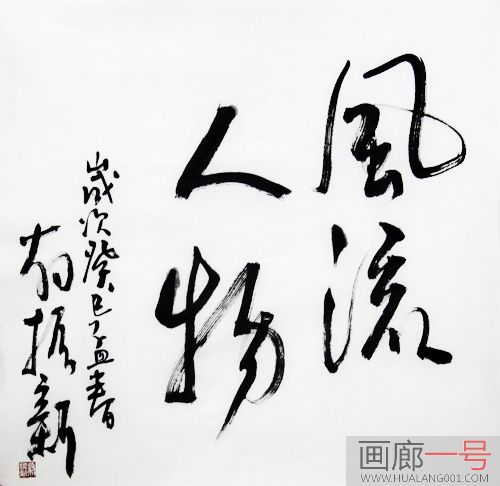 風流
人物
歲次癸巳孟春
振新
画廊一号
WWW.HUALANG001.COM